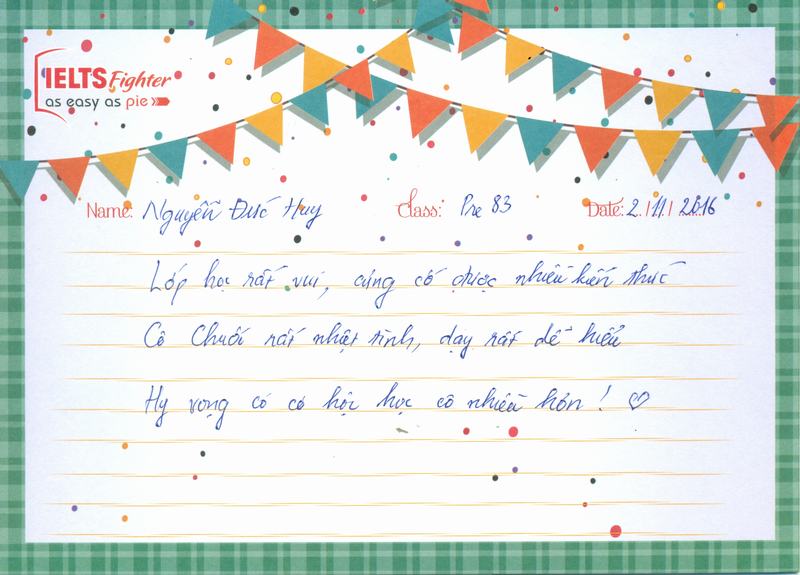 IELTS Fighter
as easy as pie
Name: Nguyễn Đức Huy Class: Pre 83 Date: 2 / 11 / 2016
Lớp học rất vui, củng cố được nhiều kiến thức
Cô Chuối rất nhiệt tình, dạy rất dễ hiểu
Hy vọng có cơ hội học cô nhiều hơn! ♡